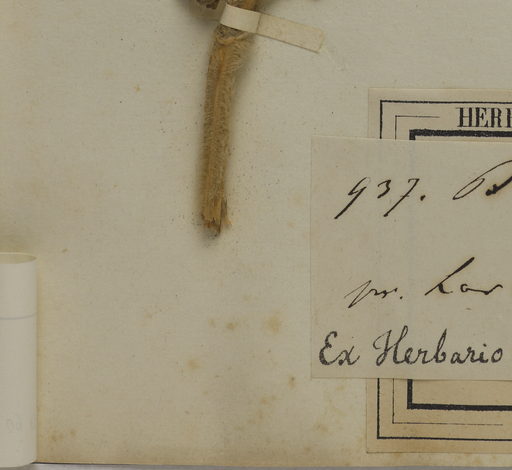 HER
937.
pr. Lar
Ex Herbario